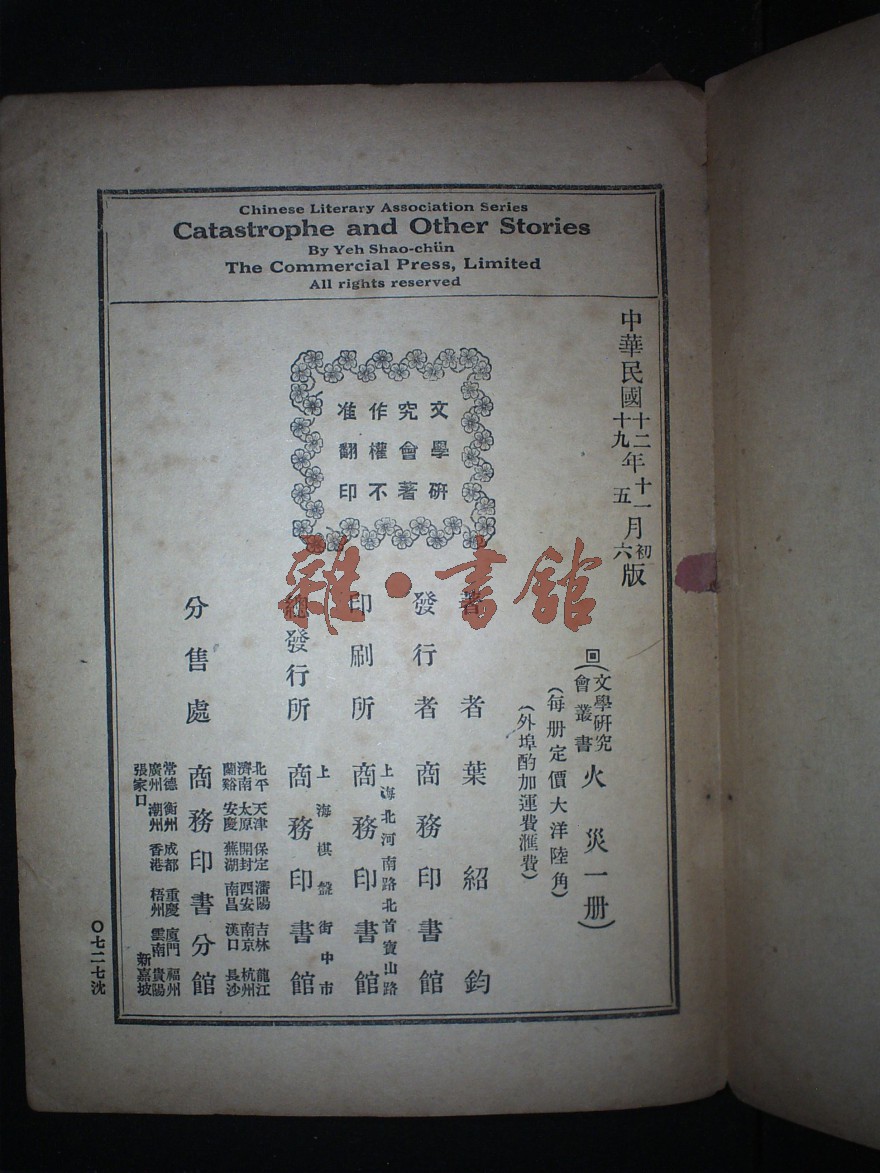 Chinese Literary Association Series
Catastrophe and Other Stories
By Yeh Shao-chün
The Commercial Press, Limited
All rights reserved
中華民國十二年十一月初版
十九五六
文學研
究會著
作權不
准翻印
回(文學研究會叢書火災一册)
(每册定價大洋陸角)
(外埠酌加運費滙費)
著者葉紹鈞
發行者商務印書館
印刷所商務印書館
上海北河南路北首寶山路
總發行所商務印書館
上海棋盤街中市
分售處商務印書分館
北平天津保定瀋陽吉林龍江
濟南太原開封西安南京杭州
蘭谿安慶蕪湖南昌漢口長沙
常德衡州成都重慶廈門福州
廣州潮州香港梧州雲南貴陽
張家口新嘉坡
〇七二七沈
雜·書館